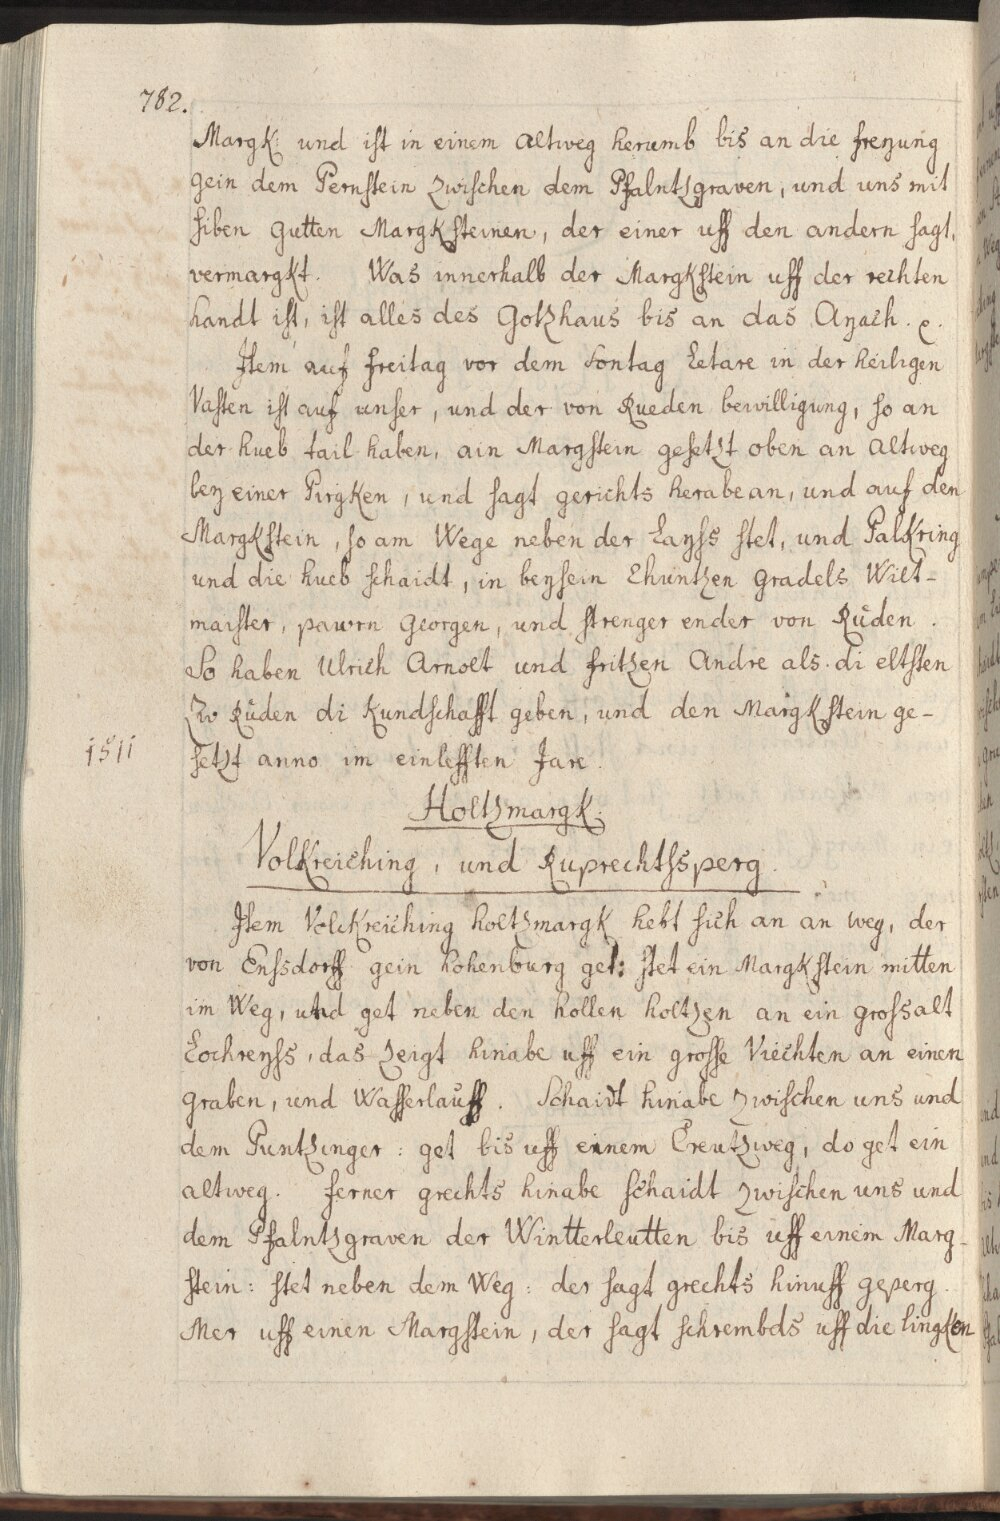 782.
Margk: und ist in einem altweg herumb bis an die freyung
gein dem Pernstein zwischen dem Pfalntzgraven, und uns mit
siben gutten Margksteinen, der einer uff den andern sagt,
vermargkt. Was innerhalb der Margkstein uff der rechten
handt ist, ist alles des Gotzhaus bis an das Ayach. c.
Item auf freitag vor dem Sontag Letare in der heiligen
Vasten ist auf unser, und der von Rueden bewilligung, so an
der hueb tail haben, ain Margstein gesetzt oben an altweg
bey einer Pirgken, und sagt gerichts herabean, und auf den
Margkstein, so am Wege neben der Layss stet, und Palkring
und die hueb schaidt, in beysein Chuntzen gradels Wilt-
maister, pawrn Georgen, und strenger ender von Rüden.
So haben Ulrich Arnolt und fritzen Andre als di eltsten
Zw Rüden di Kundschafft geben, und den Margkstein ge-
1511
setzt anno im einlefften Jare.
Holtzmargk.
Volkreiching, und Ruprechtssperg.
Item Volckreiching holtzmargk hebt sich an an weg, der
von Enssdorff gein hohenburg get: stet ein Margkstein mitten
im Weg, und get neben den hollen holtzen an ein gross alt
Lochreyss, das zeigt hinabe uff ein grosse Viechten an einen
graben, und Wasserlauff. Schaidt hinabe zwischen uns und
dem Puntzinger: get bis uff einem Creutzweg, do get ein
altweg. ferner grechts hinabe schaidt zwischen uns und
dem Pfalntzgraven der Wintterleutten bis uff einem Marg-
stein: stet neben dem Weg: der sagt grechts hinuff geperg.
Mer uff einen Margstein, der sagt schrembds uff die lingken